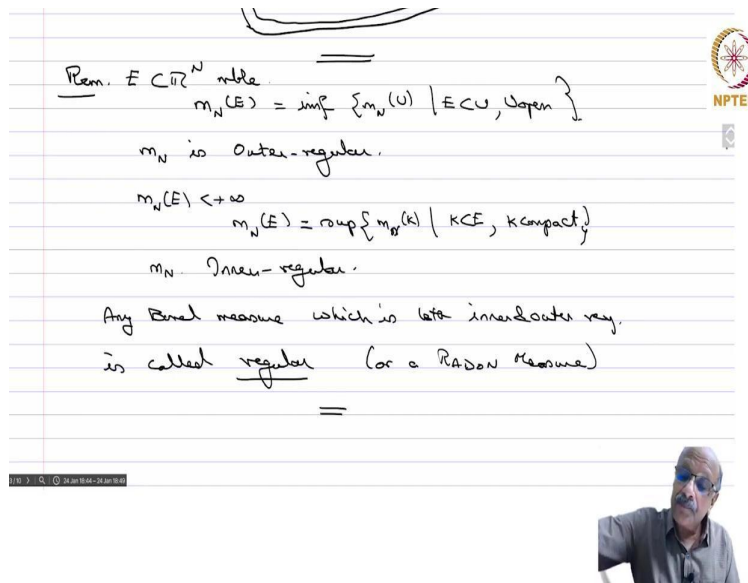 Rem. E ⊂ ℝ^N mble.
m_N(E) = inf {m_N(U) | E ⊂ U, U open}
NPTE
m_N is Outer-regular.
m_N(E) < +∞
m_N(E) = sup{m_N(K) | K ⊂ E, K compact}
m_N. Inner-regular.
Any Borel measure which is both inner & outer reg.
is called regular (or a RADON Measure)
3/10 24 Jan 18:44 - 24 Jan 18:49